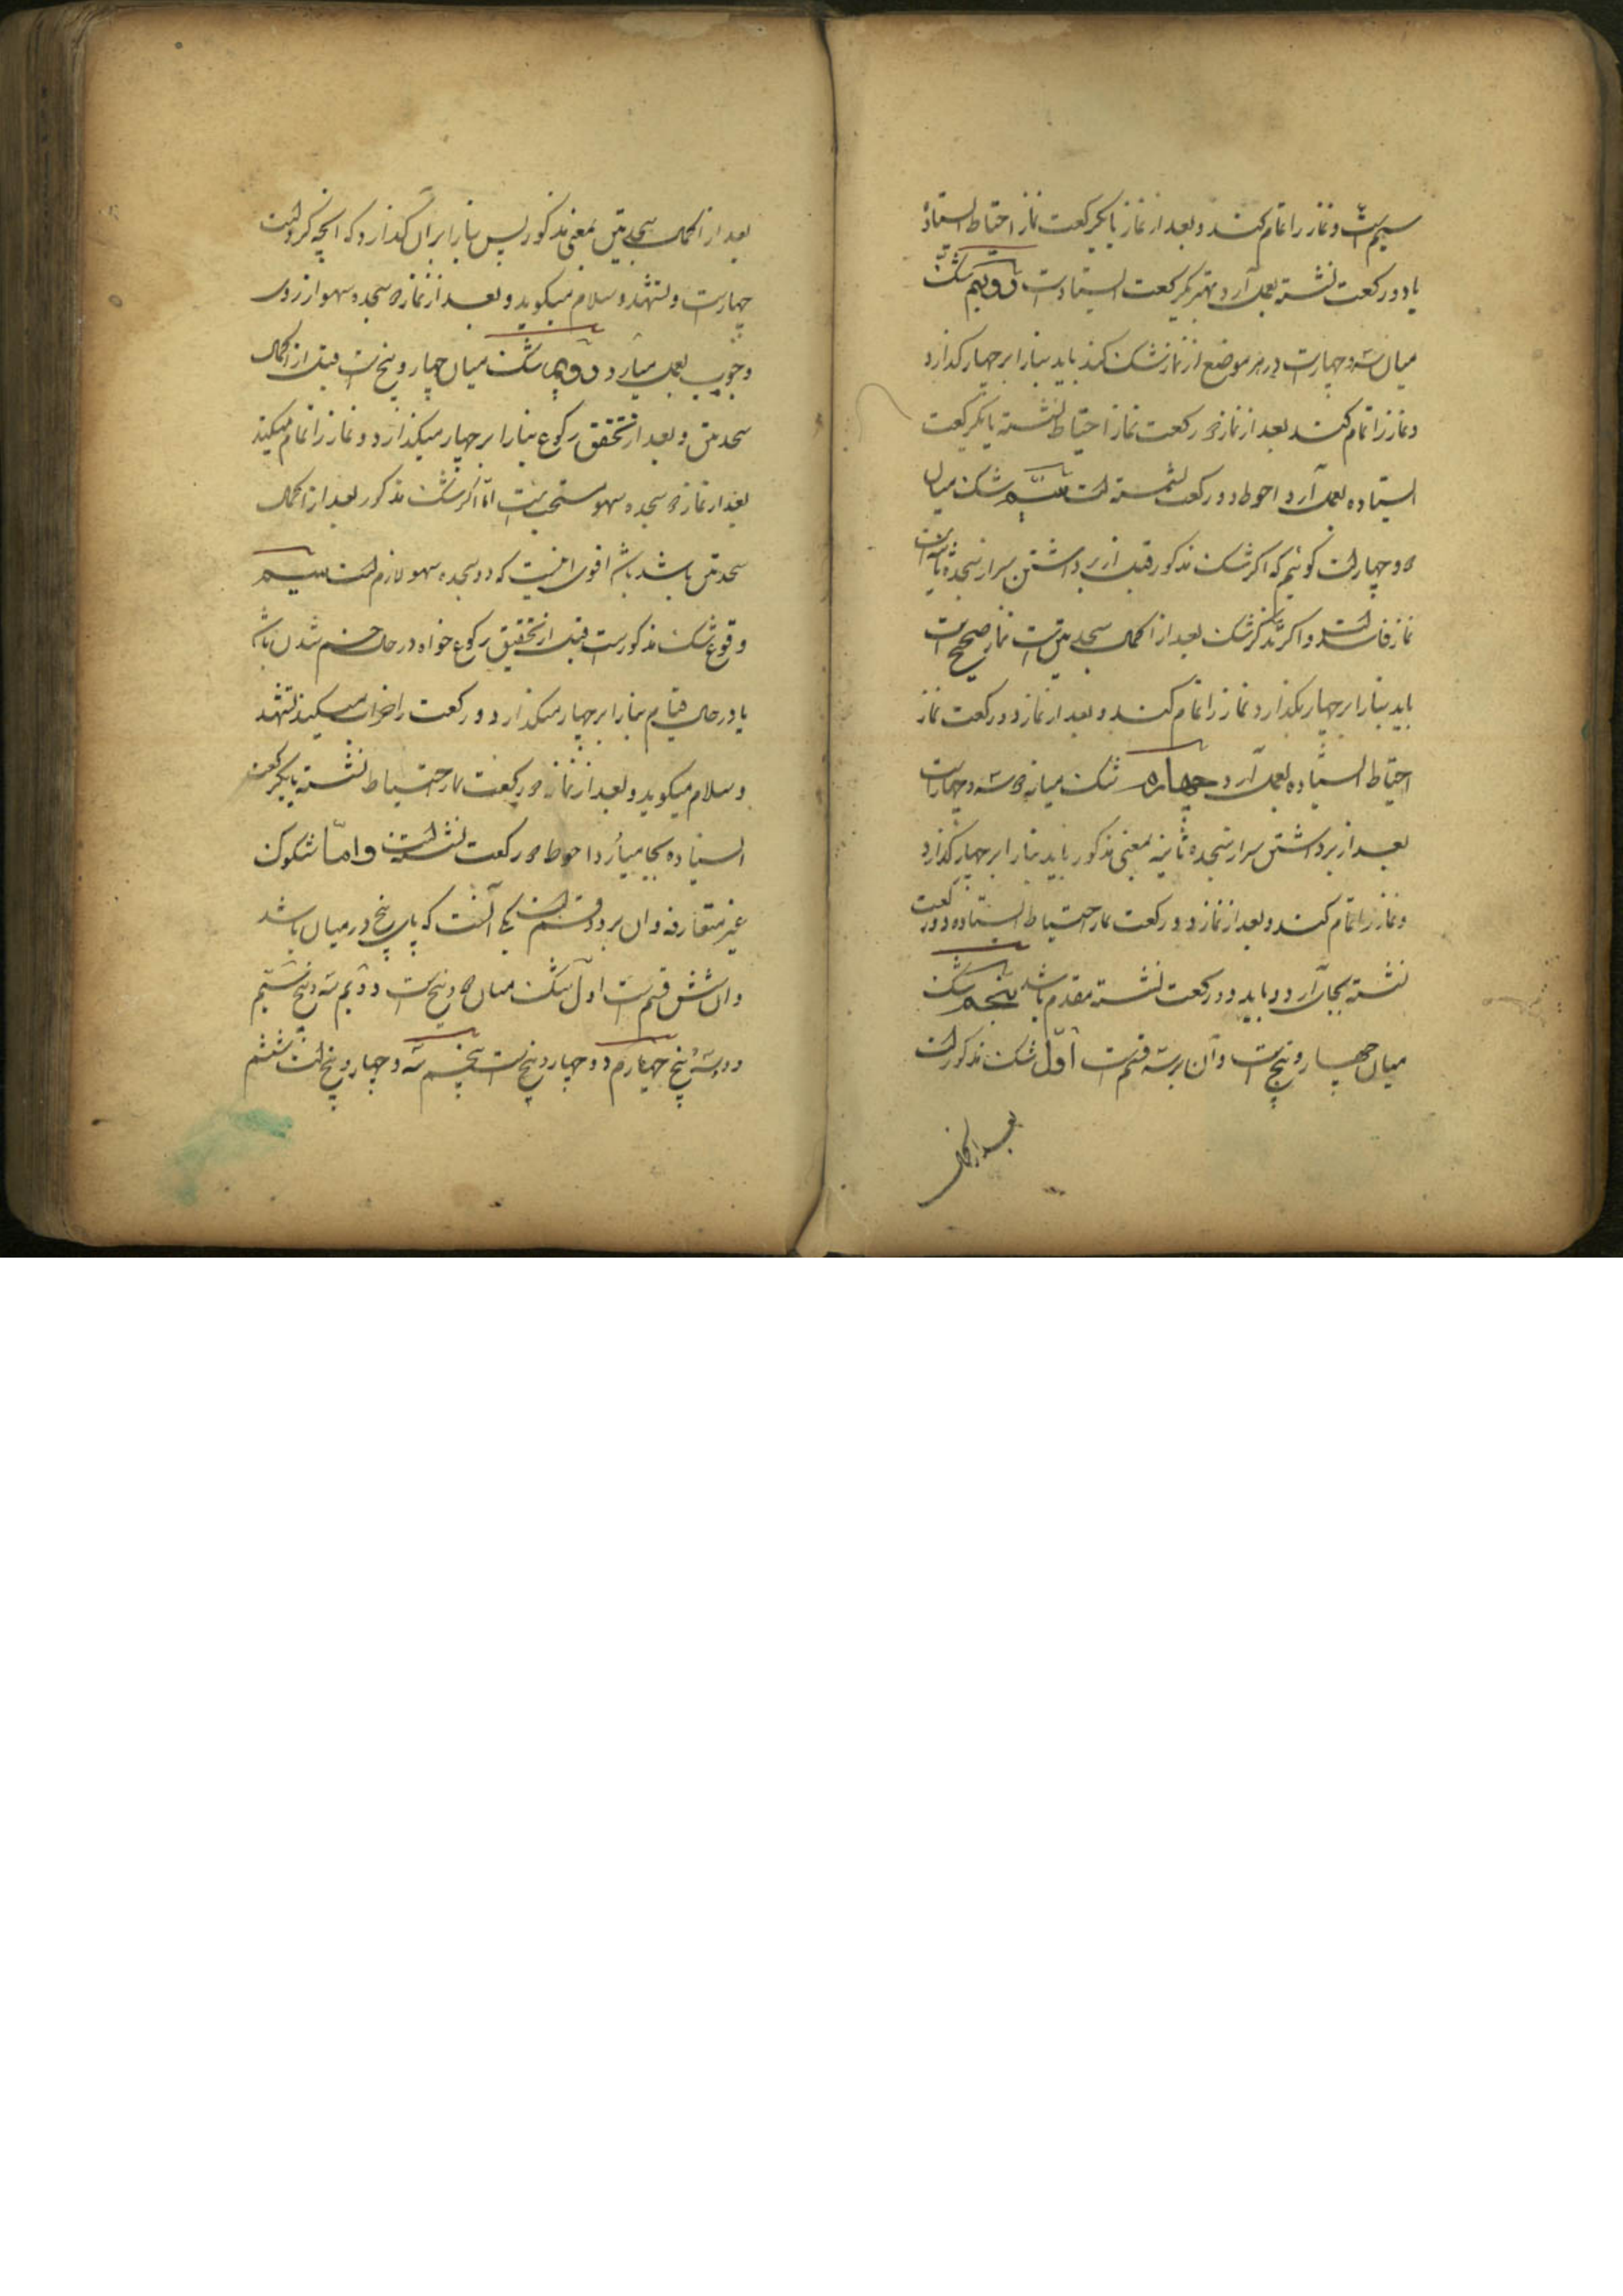 سیم است و نماز را تمام کند و بعد از نماز یا یکرکعت نماز احتیاط ایستاده
یا دو رکعت نشسته بعمل آرد و بهتر یکرکعت ایستاده است دویم شک
میان سه و چهار است در هر موضع از نماز شک کند باید بنا را بر چهار گذارد
و نماز را تمام کند بعد از نماز دو رکعت نماز احتیاط نشسته یا یکرکعت
ایستاده بعمل آرد و احوط دو رکعت نشسته است سیم شک میان
دو و چهار است گوئیم که اگر شک مذکور قبل از برداشتن سر از سجده ثانیه است
نماز فاسد است و اگر شک بعد از اکمال سجدتین است نماز صحیح است
باید بنا را بر چهار بگذارد نماز را تمام کند و بعد از نماز دو رکعت نماز
احتیاط ایستاده بعمل آرد چهارم شک میانه دو و سه و چهار است
بعد از برداشتن سر از سجده ثانیه بمعنی مذکور باید بنا را بر چهار گذارد
و نماز را تمام کند و بعد از نماز دو رکعت نماز احتیاط ایستاده و دو رکعت
نشسته بجا آرد و باید دو رکعت نشسته مقدم باشد پنجم شک
میان چهار و پنج است و آن بر سه قسم است اول شک مذکور است
بعد از اکمال
بعد از اکمال سجدتین بمعنی مذکور پس بنا را بر آن گذارد که آنچه کرده است
چهار است و تشهد و سلام میگوید و بعد از نماز دو سجده سهو از روی
وجوب بعمل میآرد دویم شک میان چهار و پنج است قبل از اکمال
سجدتین و بعد از تحقق رکوع بنا را بر چهار میگذارد و نماز را تمام میکند
بعد از نماز دو سجده سهو مستحب است اما اگر شک مذکور بعد از اکمال
سجدتین باشد اقوی اینست که دو سجده سهو لازم است سیم
وقوع شک مذکور است قبل از تحقیق رکوع خواه در حال خم شدن باشد
یا در حال قیام بنا را بر چهار میگذارد و رکعت را خراب میکند تشهد
و سلام میگوید و بعد از نماز دو رکعت نماز احتیاط نشسته یا یکرکعت
ایستاده بجا میآرد و احوط دو رکعت نشسته است و اما شکوک
غیر متعارفه و آن بر دو قسم است یکی آنست که پای پنج در میان باشد
و آن شش قسم است اول شک میان دو و پنج است دویم سه و پنج سیم
دو و سه و پنج چهارم دو و چهار و پنج است پنجم سه و چهار و پنج است ششم